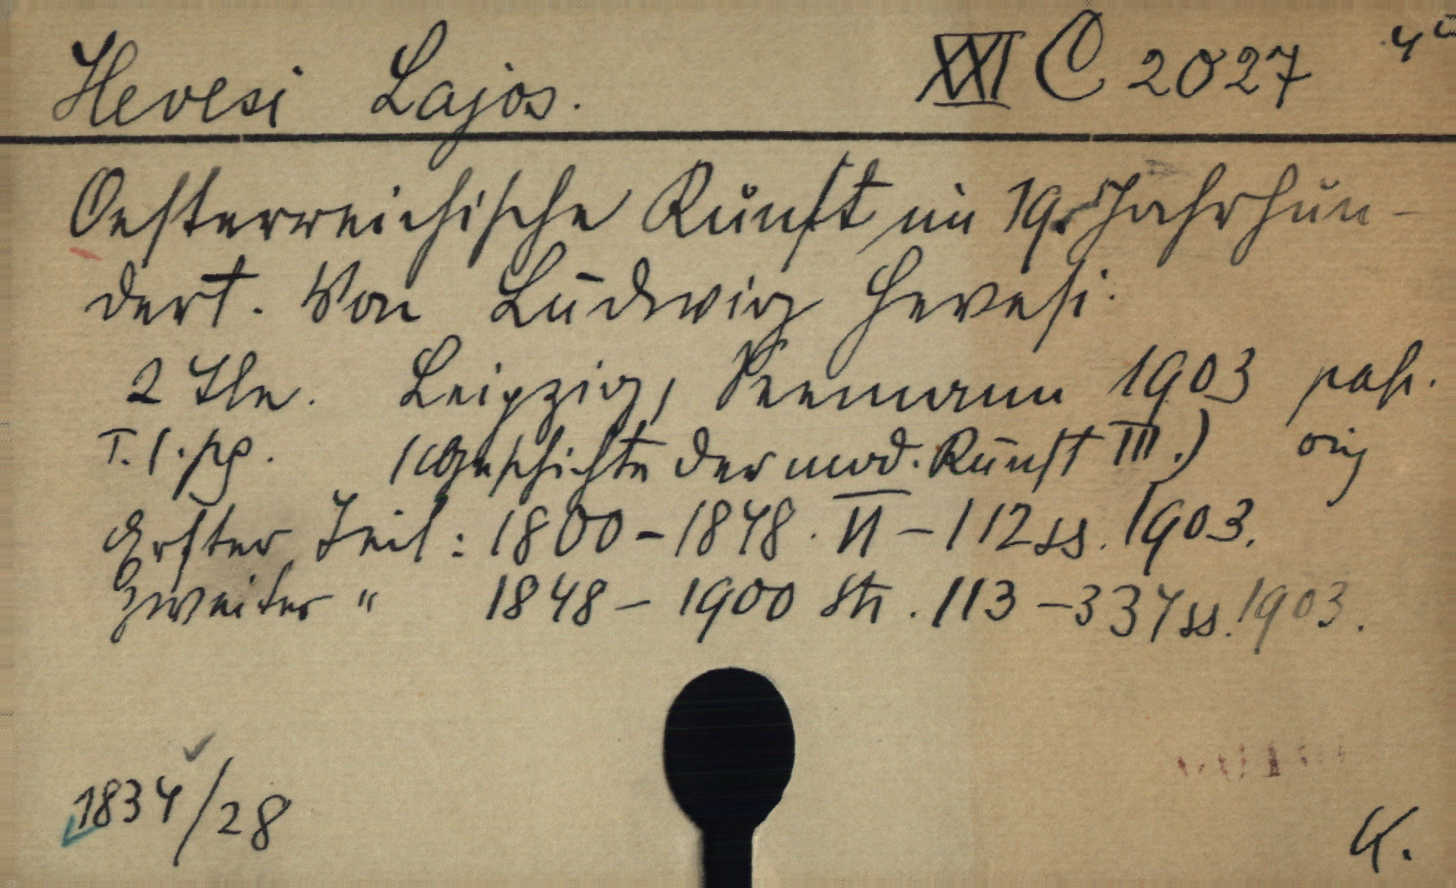 Hevesi Lajos. XXI C 2027 4º
Oesterreichische Kunst im 19. Jahrhun-
dert. Von Ludwig Hevesi.
2 Tle. Leipzig, Seemann 1903
(Geschichte der mod. Kunst III.)
Erster Teil: 1800-1848. VI-112 ss. 1903.
Zweiter " 1848-1900 113-337 ss. 1903.
1834/28
K.